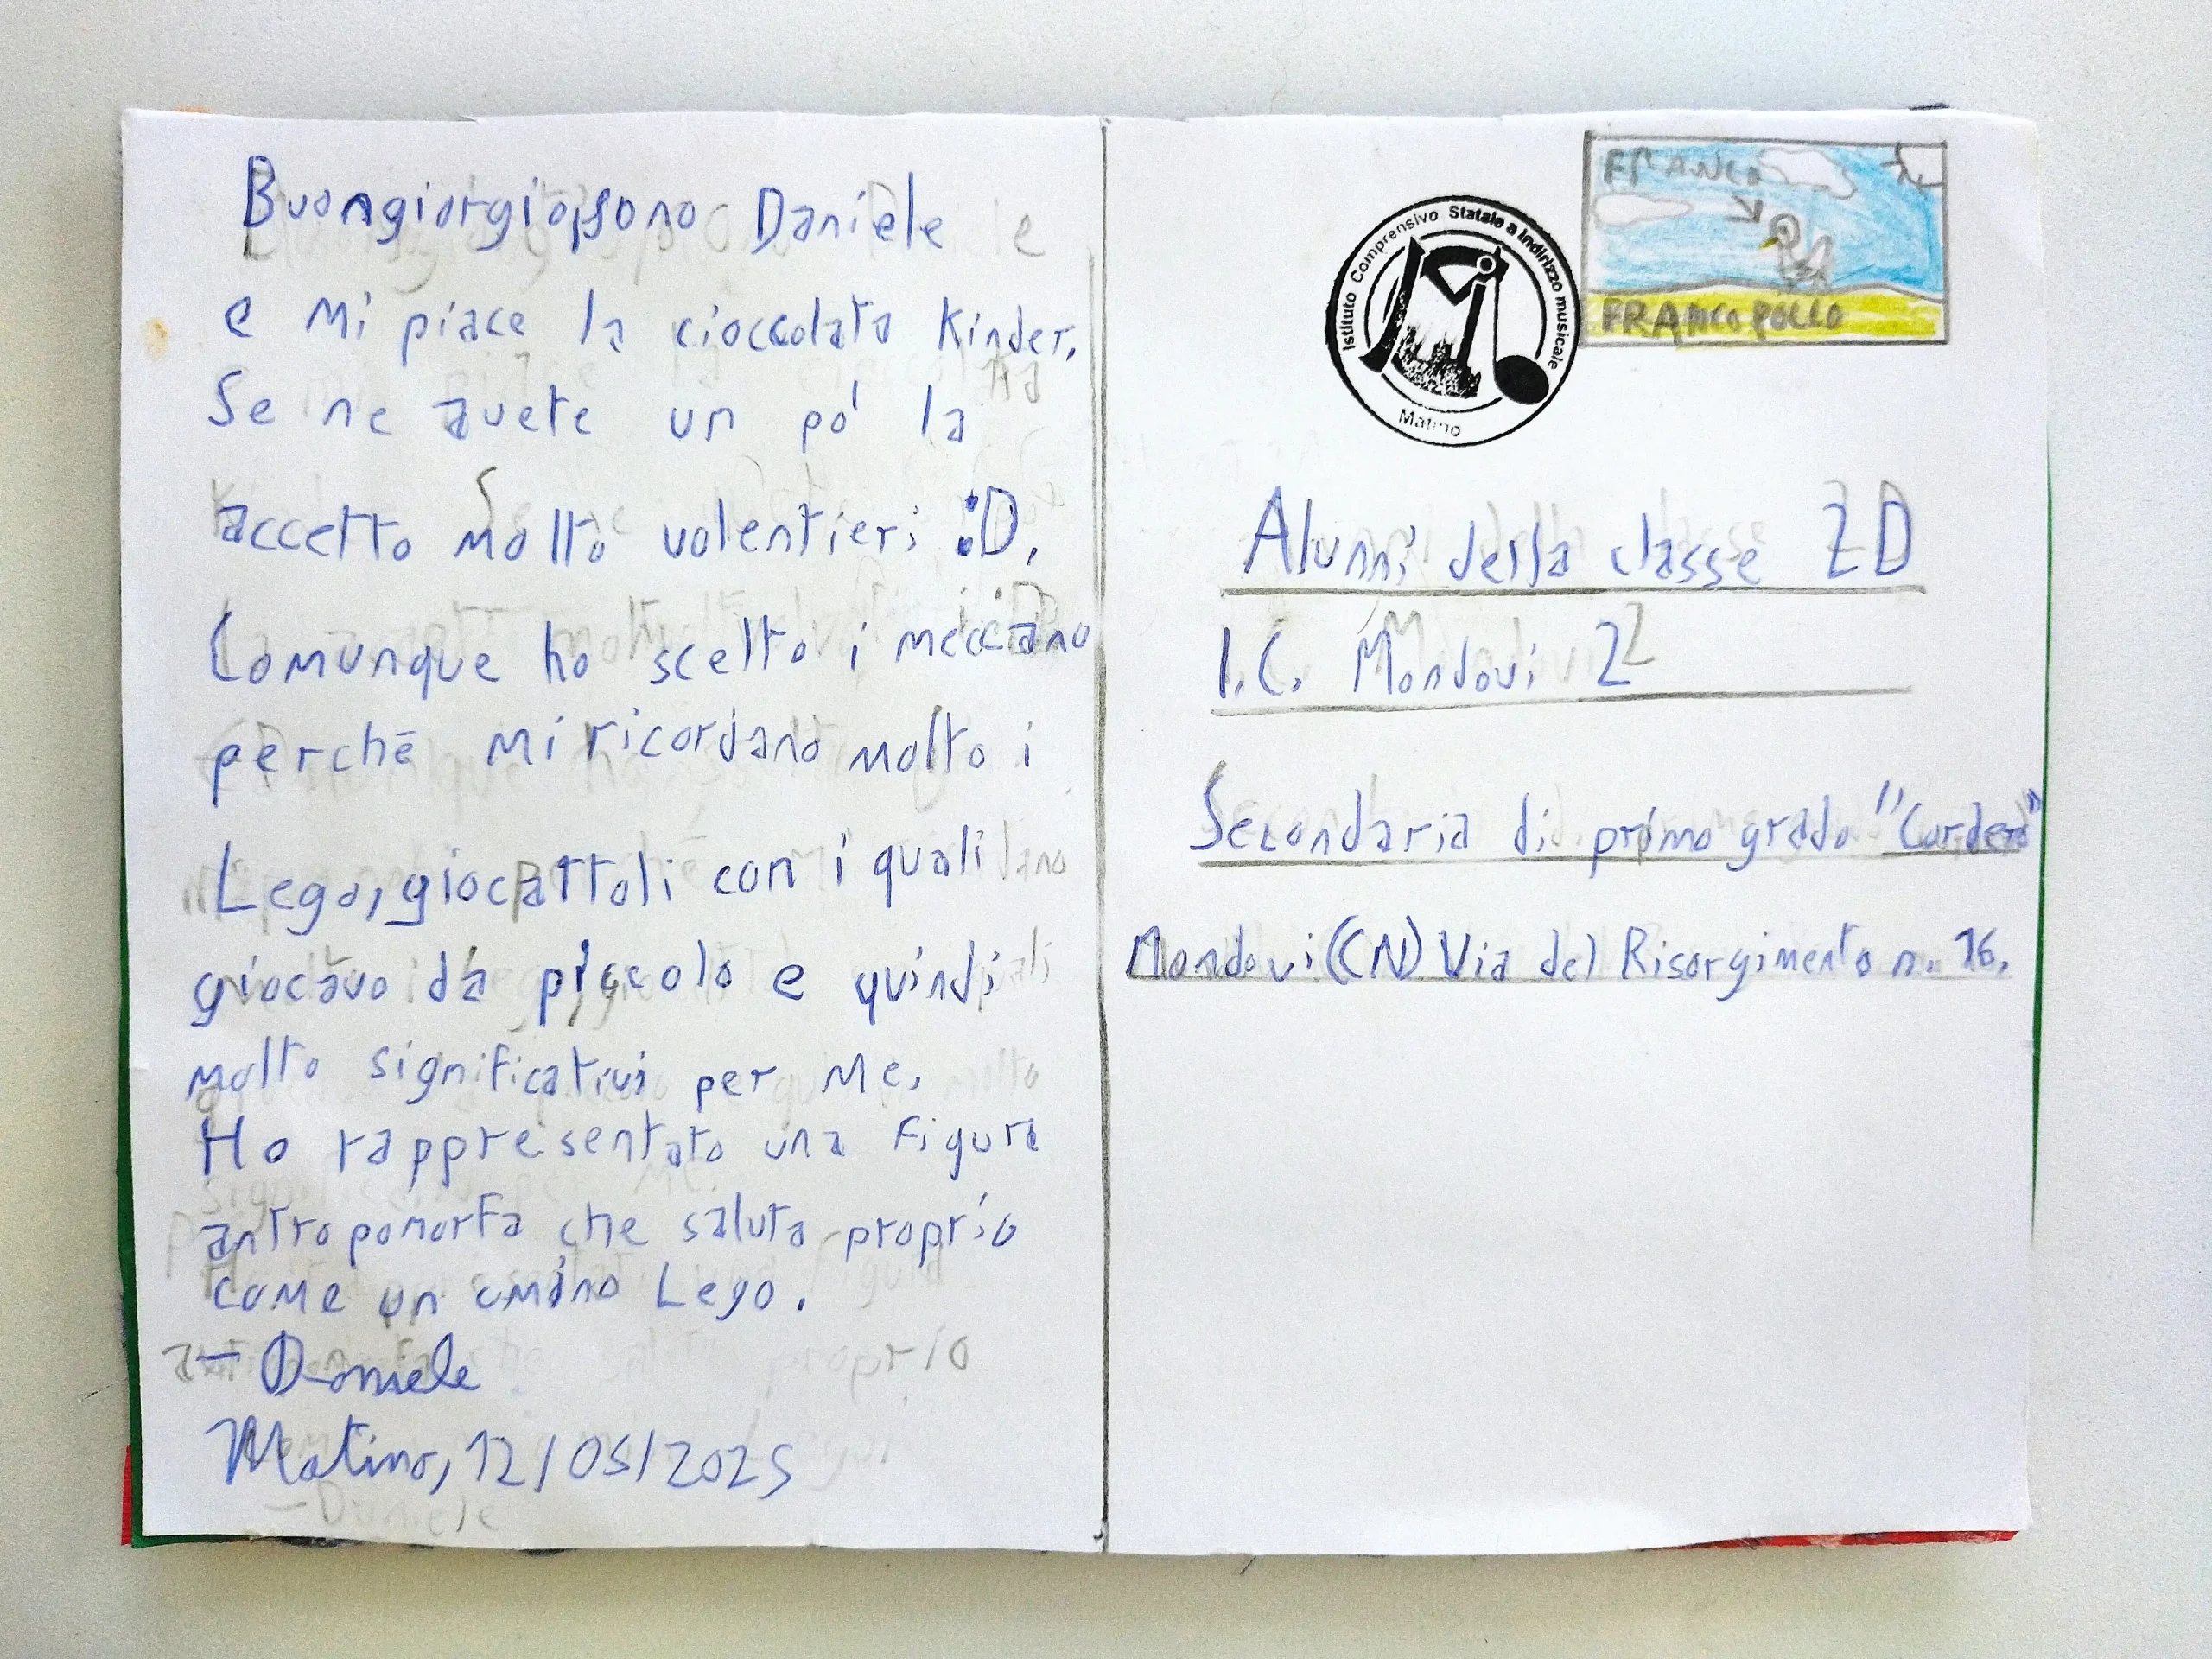 Buongiorgio, sono Daniele
e mi piace la cioccolata Kinder.
Se ne avete un pò la
accetto molto volentieri :D.
Comunque ho scelto i meccano
perchè mi ricordano molto i
Lego, giocattoli con i quali
giocavo da piccolo e quindi
molto significativi per me.
Ho rappresentato una figura
antropomorfa che saluta proprio
come un omino Lego.
– Daniele
Matino, 12/05/2025
FRANCO
FRANCO POLLO
Istituto Comprensivo Statale a Indirizzo musicale
Matino
Alunni della classe 2D
I.C. Mondovì 2
Secondaria di primo grado "Cordero"
Mondovì (CN) Via del Risorgimento n. 16.